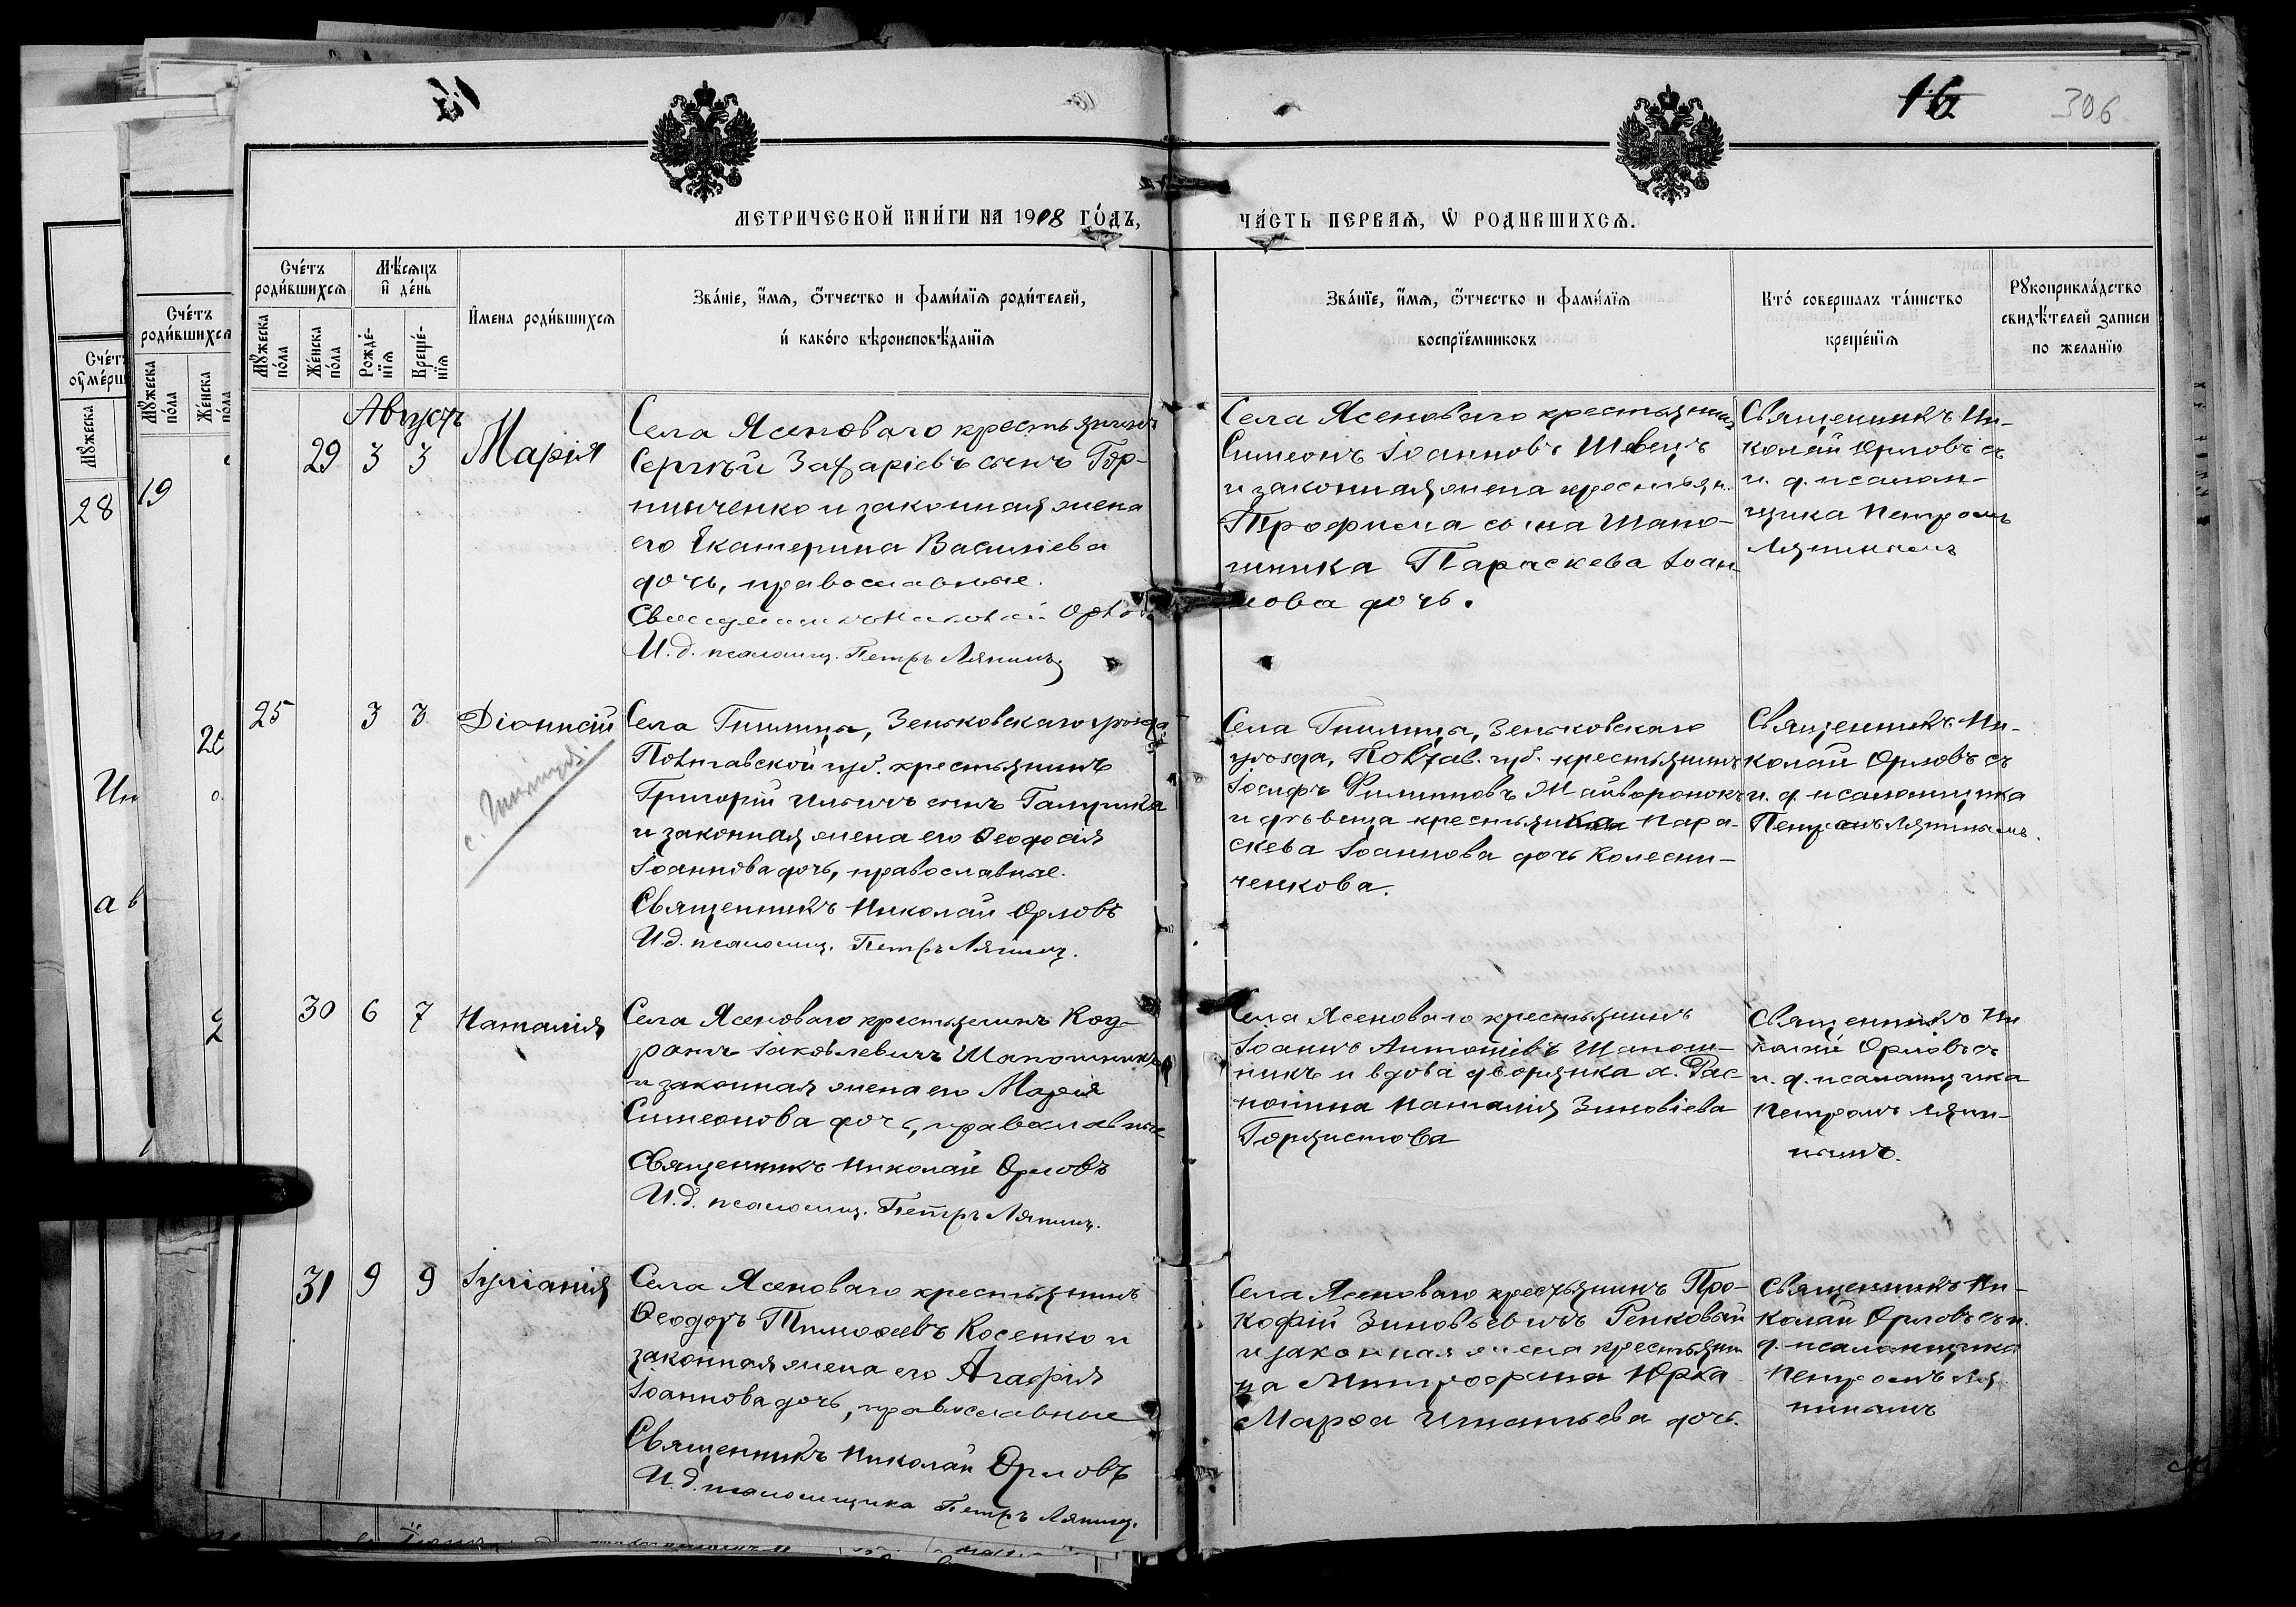 16
306
МЕТРИЧЕСКОЙ КНИ́ГИ НА 1908 ГО́ДЪ,
ЧА́СТЬ ПЕРВАѦ, Ѡ РОДИВШИХСѦ.
Сче́тъ роди́вшихсѧ
Мѣ́сѧцъ и҆ де́нь
И҆мена роди́вшихсѧ
Зва́нїе, и҆́мѧ, ѻ҆́тчество и фами́лїѧ роди́телей,
и҆ како́гѡ вѣроисповѣ́данїѧ
Мꙋ́жеска по́ла
Же́нска по́ла
Рожде́-нїѧ
Креще́-нїѧ
Зва́нїе, и҆́мѧ, ѻ҆́тчество и фами́лїѧ
воспрїе́мниковъ
Кто̀ соверша́лъ та́инство
креще́нїѧ
Рꙋкоприкла́дство
свидѣ́телей записи
по жела́нїю
Сче́тъ
роди́вшихсѧ
Мꙋ́жеска по́ла
Же́нска по́ла
Мꙋ́жеска
28
19
Августъ
29 3 3 Марія
Села Ясеноваго крестьянинъ
Сергѣй Захаріевъ сынъ Гор-
пинченко и законная жена
его Екатерина Василіева
дочь, православные.
Священникъ Николай Орловъ
И.д. псаломщ. Петръ Ляпинъ.
Села Ясеноваго крестьянинъ
Симеонъ Іоанновъ Швецъ
и законная жена крестьян.
Трофима Шапо-
шника Параскева Іоан-
нова дочь.
Священникъ Ни-
колай Орловъ съ
и. д. псалом-
щика Петромъ
Ляпинымъ
25 3 3 Діонисій
Села Гнилица, Зеньковскаго уѣзда
Полтавской губ. крестьянинъ
Григорій Ильинъ сынъ Галушка
и законная жена его Ѳеодосія
Іоаннова дочь, православные.
Священникъ Николай Орловъ
И.д. псаломщ. Петръ Ляпинъ.
Села Гнилицы, Зеньковскаго
уѣзда, Полтав. губ. крестьянинъ
Іосифъ Филиповъ Жайворонокъ
и дѣвица крестьянка Пара-
скева Іоаннова дочь Колесни-
ченкова.
Священникъ Ни-
колай Орловъ съ
и. д. псаломщика
Петромъ Ляпинымъ.
30 6 7 Наталія
Села Ясеноваго крестьянинъ Код-
ратъ Іаковлевичъ Шапошникъ
и законная жена его Марія
Симеонова дочь, православные
Священникъ Николай Орловъ
И.д. псаломщ. Петръ Ляпинъ.
Села Ясеноваго крестьянинъ
Іоаннъ Антоніевъ Шапош-
никъ и вдова дворянка х. Рас-
Наталія Зиновіева
Священникъ Ни
колай Орловъ съ
и. д. псаломщика
Петромъ Ляпи-
нымъ.
31 9 9 Іуліанія
Села Ясеноваго крестьянинъ
Ѳеодоръ Тимоѳеевъ Косенко и
законная жена его Агафія
Іоаннова дочь, православные
Священникъ Николай Орловъ
И.д. псаломщика Петръ Ляпинъ.
Села Ясеноваго крестьянинъ Про-
кофій Зиновьевичъ Репковый
и законная жена крестьяни
на Митрофана Юрка
Марѳа Игнатьева дочь.
Священникъ Ни-
колай Орловъ съ и.
д. псаломщика
Петромъ Ля
пинымъ